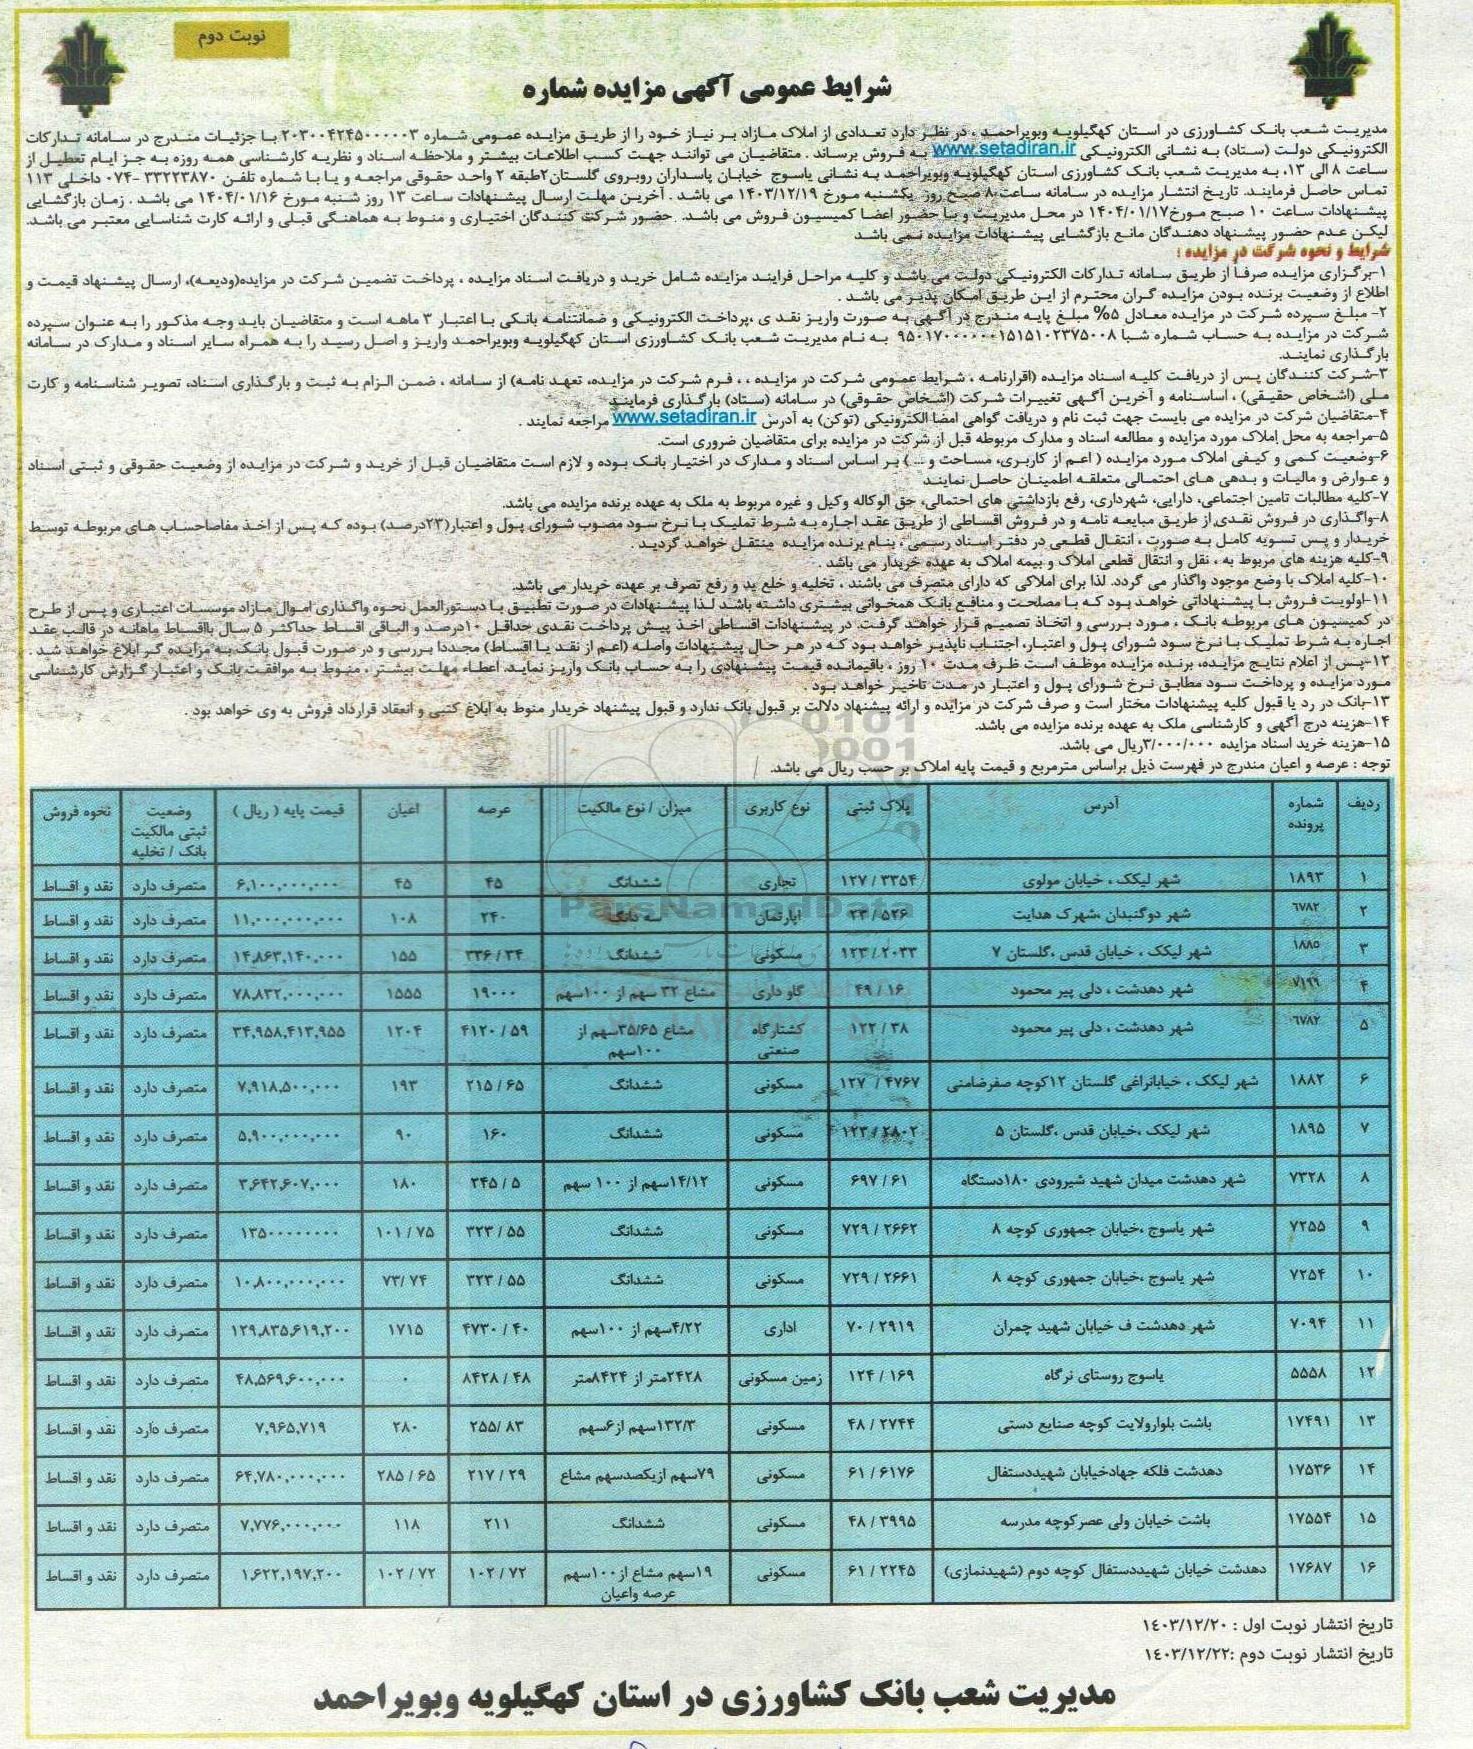 نوبت دوم
شرایط عمومی آگهی مزایده شماره
مدیریت شعب بانک کشاورزی در استان کهگیلویه وبویراحمد ، در نظر دارد تعدادی از املاک مازاد بر نیاز خود را از طریق مزایده عمومی شماره ۲۰۳۰۰۴۲۴۵۰۰۰۰۰۳ با جزئیات مندرج در سامانه تدارکات
الکترونیکی دولت (ستاد) به نشانی الکترونیکی www.setadiran.ir به فروش برساند . متقاضیان می توانند جهت کسب اطلاعات بیشتر و ملاحظه اسناد و نظریه کارشناسی همه روزه به جز ایام تعطیل از
ساعت ۸ الی ۱۳، به مدیریت شعب بانک کشاورزی استان کهگیلویه وبویراحمد به نشانی یاسوج خیابان پاسداران روبروی گلستان۲طبقه ۲ واحد حقوقی مراجعه و یا با شماره تلفن ۳۳۲۲۳۸۷۰ -۰۷۴ داخلی ۱۱۳
تماس حاصل فرمایند. تاریخ انتشار مزایده در سامانه ساعت ۸ صبح روز یکشنبه مورخ ۱۴۰۳/۱۲/۱۹ می باشد . آخرین مهلت ارسال پیشنهادات ساعت ۱۳ روز شنبه مورخ ۱۴۰۴/۰۱/۱۶ می باشد . زمان بازگشایی
پیشنهادات ساعت ۱۰ صبح مورخ۱۴۰۴/۰۱/۱۷ در محل مدیریت و با حضور اعضا کمیسیون فروش می باشد. .حضور شرکت کنندگان اختیاری و منوط به هماهنگی قبلی و ارائه کارت شناسایی معتبر می باشد.
لیکن عدم حضور پیشنهاد دهندگان مانع بازگشایی پیشنهادات مزایده نمی باشد
شرایط و نحوه شرکت در مزایده :
۱-برگزاری مزایده صرفا از طریق سامانه تدارکات الکترونیکی دولت می باشد و کلیه مراحل فرایند مزایده شامل خرید و دریافت اسناد مزایده ، پرداخت تضمین شرکت در مزایده(ودیعه)، ارسال پیشنهاد قیمت و
اطلاع از وضعیت برنده بودن مزایده گران محترم از این طریق امکان پذیر می باشد .
۲- مبلغ سپرده شرکت در مزایده معادل ۵% مبلغ پایه مندرج در آگهی به صورت واریز نقد ی ،پرداخت الکترونیکی و ضمانتنامه بانکی با اعتبار ۳ ماهه است و متقاضیان باید وجه مذکور را به عنوان سپرده
شرکت در مزایده به حساب شماره شبا به نام مدیریت شعب بانک کشاورزی استان کهگیلویه وبویراحمد واریز و اصل رسید را به همراه سایر اسناد و مدارک در سامانه
بارگذاری نمایند.
۳-شرکت کنندگان پس از دریافت کلیه اسناد مزایده (اقرارنامه ، شرایط عمومی شرکت در مزایده ، ، فرم شرکت در مزایده، تعهد نامه) از سامانه ، ضمن الزام به ثبت و بارگذاری اسناد، تصویر شناسنامه و کارت
ملی (اشخاص حقیقی) ، اساسنامه و آخرین آگهی تغییرات شرکت (اشخاص حقوقی) در سامانه (ستاد) بارگذاری فرمایند
۴-متقاضیان شرکت در مزایده می بایست جهت ثبت نام و دریافت گواهی امضا الکترونیکی (توکن) به آدرس www.setadiran.ir مراجعه نمایند .
۵-مراجعه به محل املاک مورد مزایده و مطالعه اسناد و مدارک مربوطه قبل از شرکت در مزایده برای متقاضیان ضروری است.
۶-وضعیت کمی و کیفی املاک مورد مزایده ( اعم از کاربری، مساحت و ... ) بر اساس اسناد و مدارک در اختیار بانک بوده و لازم است متقاضیان قبل از خرید و شرکت در مزایده از وضعیت حقوقی و ثبتی اسناد
و عوارض و مالیات و بدهی های احتمالی متعلقه اطمینان حاصل نمایند
۷-کلیه مطالبات تامین اجتماعی، دارایی، شهرداری، رفع بازداشتی های احتمالی، حق الوکاله وکیل و غیره مربوط به ملک به عهده برنده مزایده می باشد.
۸-واگذاری در فروش نقدی از طریق مبایعه نامه و در فروش اقساطی از طریق عقد اجاره به شرط تملیک با نرخ سود مصوب شورای پول و اعتبار(۲۳درصد) بوده که پس از اخذ مفاصاحساب های مربوطه توسط
خریدار و پس تسویه کامل به صورت ، انتقال قطعی در دفتر اسناد رسمی ، بنام برنده مزایده منتقل خواهد گردید .
۹-کلیه هزینه های مربوط به ، نقل و انتقال قطعی املاک و بیمه املاک به عهده خریدار می باشد .
۱۰-کلیه املاک با وضع موجود واگذار می گردد. لذا برای املاکی که دارای متصرف می باشند ، تخلیه و خلع ید و رفع تصرف بر عهده خریدار می باشد.
۱۱-اولویت فروش با پیشنهاداتی خواهد بود که با مصلحت و منافع بانک همخوانی بیشتری داشته باشد لذا پیشنهادات در صورت تطبیق با دستورالعمل نحوه واگذاری اموال مازاد موسسات اعتباری و پس از طرح
در کمیسیون های مربوطه بانک ، مورد بررسی و اتخاذ تصمیم قرار خواهد گرفت. در پیشنهادات اقساطی اخذ پیش پرداخت نقدی حداقل ۱۰درصد و الباقی اقساط حداکثر ۵ سال بااقساط ماهانه در قالب عقد
اجاره به شرط تملیک با نرخ سود شورای پول و اعتبار، اجتناب ناپذیر خواهد بود که در هر حال پیشنهادات واصله (اعم از نقد یا اقساط) مجددا بررسی و در صورت قبول بانک به مزایده گر ابلاغ خواهد شد .
۱۲-پس از اعلام نتایج مزایده، برنده مزایده موظف است ظرف مدت ۱۰ روز ، باقیمانده قیمت پیشنهادی را به حساب بانک واریز نماید. اعطاء مهلت بیشتر ، منوط به موافقت بانک و اعتبار گزارش کارشناسی
مورد مزایده و پرداخت سود مطابق نرخ شورای پول و اعتبار در مدت تاخیر خواهد بود .
۱۳-بانک در رد یا قبول کلیه پیشنهادات مختار است و صرف شرکت در مزایده و ارائه پیشنهاد دلالت بر قبول بانک ندارد و قبول پیشنهاد خریدار منوط به ابلاغ کتبی و انعقاد قرارداد فروش به وی خواهد بود .
۱۴-هزینه درج آگهی و کارشناسی ملک به عهده برنده مزایده می باشد.
۱۵-هزینه خرید اسناد مزایده ۳/۰۰۰/۰۰۰ریال می باشد.
توجه : عرصه و اعیان مندرج در فهرست ذیل براساس مترمربع و قیمت پایه املاک بر حسب ریال می باشد.
ردیف شماره پرونده آدرس پلاک ثبتی نوع کاربری میزان / نوع مالکیت عرصه اعیان قیمت پایه ( ریال ) وضعیت ثبتی مالکیت بانک / تخلیه نحوه فروش
۱ ۱۸۹۳ شهر لیکک ، خیابان مولوی ۱۲۷ / ۳۳۵۴ تجاری ششدانگ ۴۵ ۴۵ ۶,۱۰۰,۰۰۰,۰۰۰ متصرف دارد نقد و اقساط
۲ ۶۷۸۲ شهر دوگنبدان ،شهرک هدایت ۲۳ / ۵۲۶ آپارتمان سه دانگ ۲۴۰ ۱۰۸ ۱۱,۰۰۰,۰۰۰,۰۰۰ متصرف دارد نقد و اقساط
۳ ۱۸۸۵ شهر لیکک ، خیابان قدس ،گلستان ۷ ۱۲۳ / ۲۰۳۳ مسکونی ششدانگ ۳۳۶ / ۳۴ ۱۵۵ ۱۴,۸۶۳,۱۴۰,۰۰۰ متصرف دارد نقد و اقساط
۴ ۷۱۹۹ شهر دهدشت ، دلی پیر محمود ۴۹ / ۱۶ گاو داری مشاع ۳۲ سهم از ۱۰۰سهم ۱۹۰۰۰ ۱۵۵۵ ۷۸,۸۳۲,۰۰۰,۰۰۰ متصرف دارد نقد و اقساط
۵ ۶۷۸۲ شهر دهدشت ، دلی پیر محمود ۱۲۲ / ۳۸ کشتارگاه صنعتی مشاع ۳۵/۶۵سهم از ۱۰۰سهم ۴۱۲۰ / ۵۹ ۱۲۰۴ ۳۴,۹۵۸,۴۱۳,۹۵۵ متصرف دارد نقد و اقساط
۶ ۱۸۸۲ شهر لیکک ، خیابانراغی گلستان ۱۲کوچه صفرضامنی ۱۲۷ / ۴۷۶۷ مسکونی ششدانگ ۲۱۵ / ۶۵ ۱۹۳ ۷,۹۱۸,۵۰۰,۰۰۰ متصرف دارد نقد و اقساط
۷ ۱۸۹۵ شهر لیکک ،خیابان قدس ،گلستان ۵ ۱۲۳ / ۲۸۰۲ مسکونی ششدانگ ۱۶۰ ۹۰ ۵,۹۰۰,۰۰۰,۰۰۰ متصرف دارد نقد و اقساط
۸ ۷۳۲۸ شهر دهدشت میدان شهید شیرودی ۱۸۰دستگاه ۶۹۷ / ۶۱ مسکونی ۱۴/۱۲سهم از ۱۰۰ سهم ۲۴۵ / ۵ ۱۸۰ ۳,۶۴۲,۶۰۷,۰۰۰ متصرف دارد نقد و اقساط
۹ ۷۲۵۵ شهر یاسوج ،خیابان جمهوری کوچه ۸ ۷۲۹ / ۲۶۶۲ مسکونی ششدانگ ۳۲۳ / ۵۵ ۱۰۱ / ۷۵ ۱۳۵۰۰۰۰۰۰۰۰ متصرف دارد نقد و اقساط
۱۰ ۷۲۵۴ شهر یاسوج ،خیابان جمهوری کوچه ۸ ۷۲۹ / ۲۶۶۱ مسکونی ششدانگ ۳۲۳ / ۵۵ ۷۳/ ۷۴ ۱۰,۸۰۰,۰۰۰,۰۰۰ متصرف دارد نقد و اقساط
۱۱ ۷۰۹۴ شهر دهدشت ف خیابان شهید چمران ۷۰ / ۲۹۱۹ اداری ۴/۲۲سهم از ۱۰۰سهم ۴۷۳۰ / ۴۰ ۱۷۱۵ ۱۲۹,۸۳۵,۶۱۹,۲۰۰ متصرف دارد نقد و اقساط
۱۲ ۵۵۵۸ یاسوج روستای نرگاه ۱۲۴ / ۱۶۹ زمین مسکونی ۲۴۲۸متر از ۸۴۲۴متر ۸۴۲۸ / ۴۸ ۰ ۴۸,۵۶۹,۶۰۰,۰۰۰ متصرف دارد نقد و اقساط
۱۳ ۱۷۴۹۱ باشت بلوارولایت کوچه صنایع دستی ۴۸ / ۲۷۴۴ مسکونی ۱۳۲/۳سهم از۶سهم ۲۵۵/ ۸۳ ۲۸۰ ۷,۹۶۵,۷۱۹ متصرف دارد نقد و اقساط
۱۴ ۱۷۵۳۶ دهدشت فلکه جهادخیابان شهیددستفال ۶۱ / ۶۱۷۶ مسکونی ۷۹سهم ازیکصدسهم مشاع ۲۱۷ / ۲۹ ۲۸۵ / ۶۵ ۶۴,۷۸۰,۰۰۰,۰۰۰ متصرف دارد نقد و اقساط
۱۵ ۱۷۵۵۴ باشت خیابان ولی عصرکوچه مدرسه ۴۸ / ۳۹۹۵ مسکونی ششدانگ ۲۱۱ ۱۱۸ ۷,۷۷۶,۰۰۰,۰۰۰ متصرف دارد نقد و اقساط
۱۶ ۱۷۶۸۷ دهدشت خیابان شهیددستفال کوچه دوم (شهیدنمازی) ۶۱ / ۲۲۴۵ مسکونی ۱۹سهم مشاع از۱۰۰سهم عرصه واعیان ۱۰۲ / ۷۲ ۱۰۲ / ۷۲ ۱,۶۲۲,۱۹۷,۲۰۰ متصرف دارد نقد و اقساط
ParsNamadData
تاریخ انتشار نوبت اول : ۱۴۰۳/۱۲/۲۰
تاریخ انتشار نوبت دوم :۱۴۰۳/۱۲/۲۲
مدیریت شعب بانک کشاورزی در استان کهگیلویه وبویراحمد